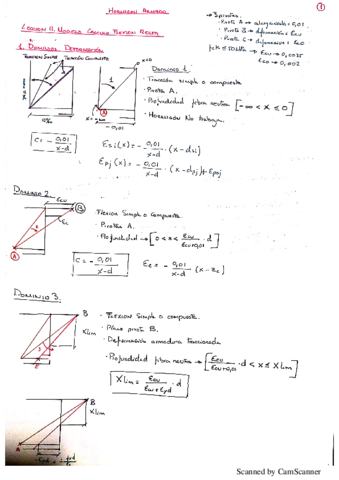 HORMIGÓN ARMADO
1
→ 3 pivotes:
· Pivote A → alargamiento = 0,01
· Pivote B → deformación = εcu
· Pivote C → deformación = εc0
fck ≤ 50 MPa → εcu = 0,0035
εc0 = 0,002
1. DOMINIOS DEFORMACIÓN
TRACCIÓN SIMPLE o TRACCIÓN COMPUESTA
DOMINIO 1
· Tracción simple o compuesta
· Pivote A.
· Profundidad fibra neutra [-∞ < x ≤ 0]
· HORMIGÓN No trabaja.
-0,01
C = - 0,01 / x-d
εsi(x) = - 0,01 / x-d · (x-dsi)
εpj(x) = - 0,01 / x-d · (x-dpj) + εpoj
DOMINIO 2
εcu
B
εc
A
· FLEXIÓN Simple o Compuesta.
· Pivote A.
· Profundidad → [0 < x ≤ εcu / εcu+0,01 · d]
C = - 0,01 / x-d
εc = - 0,01 / x-d · (x-zc)
DOMINIO 3
B
Xlim
· FLEXION Simple o compuesta.
· Plano pivota B.
· Deformación armadura traccionada
· Profundidad fibra neutra → [εcu / εcu+0,01 · d < x ≤ Xlim]
Xlim = εcu / εcu+εyd · d
B
Xlim
A
Scanned by CamScanner